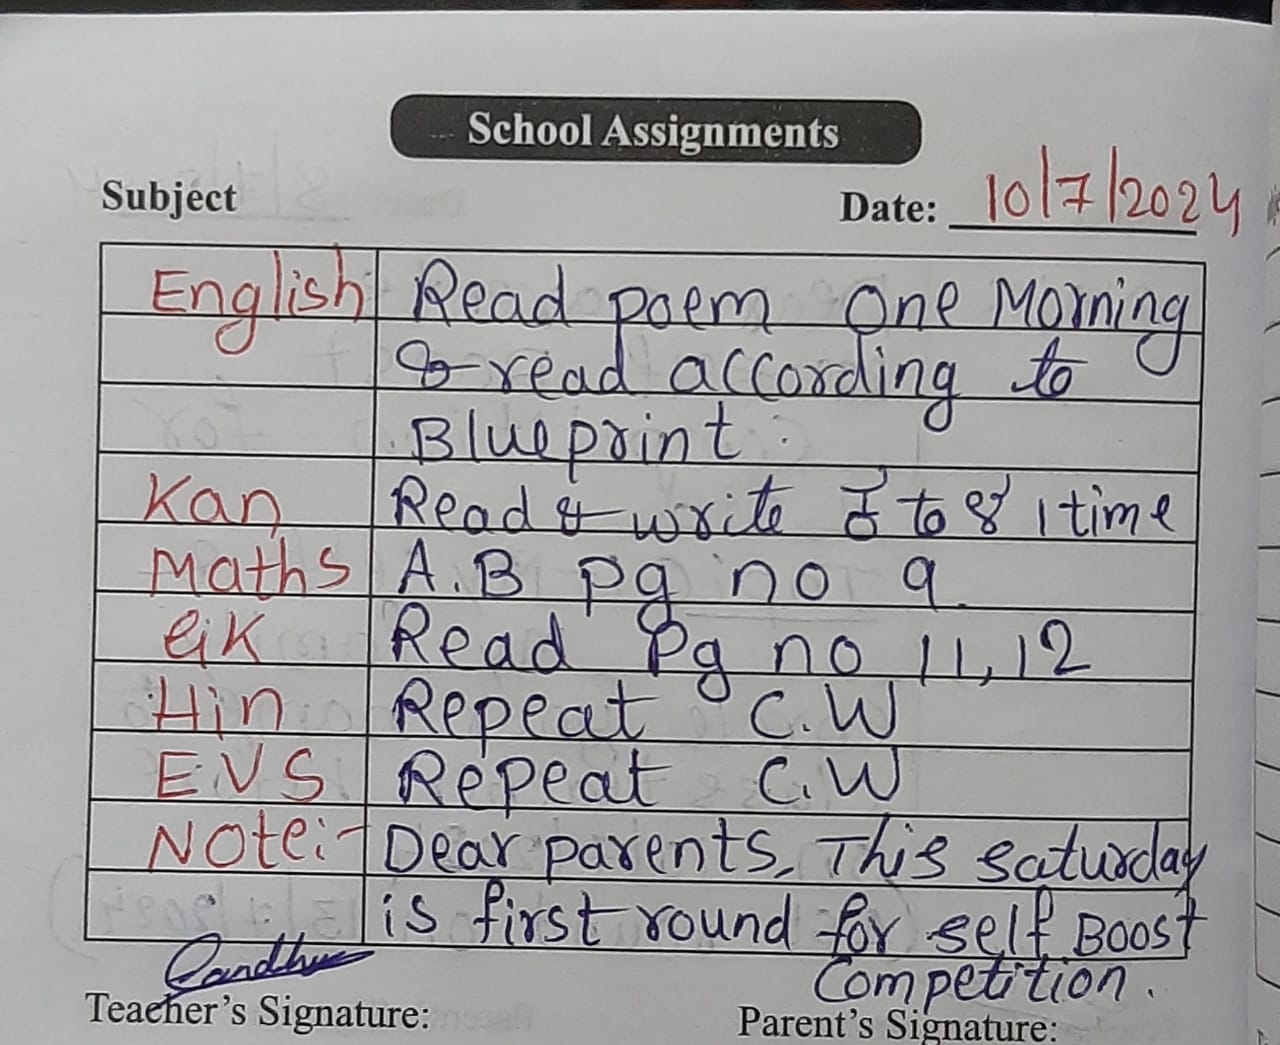 School Assignments
Subject Date: 10/7/2024
English Read poem One Morning
& read according to
Blueprint.
Kan Read & write to 1 time
Maths A.B pg no 9.
G.K Read Pg no 11,12
Hin Repeat C.W
EVS Repeat C.W
Note:- Dear parents, This saturday
is first round for self Boost
Competition.
Teacher's Signature: Parent's Signature: